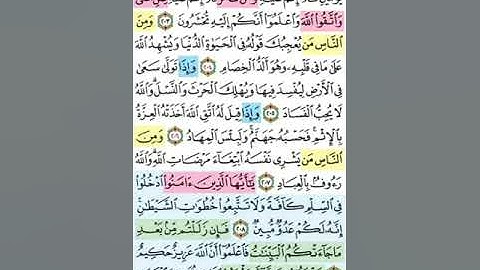 وَاتَّقُوا اللَّهَ وَاعْلَمُوا أَنَّكُمْ إِلَيْهِ تُحْشَرُونَ ٢٠٣ وَمِنَ
النَّاسِ مَن يُعْجِبُكَ قَوْلُهُ فِي الْحَيَوٰةِ الدُّنْيَا وَيُشْهِدُ اللَّهَ
عَلَىٰ مَا فِي قَلْبِهِ وَهُوَ أَلَدُّ الْخِصَامِ ٢٠٤ وَإِذَا تَوَلَّىٰ سَعَىٰ
فِي الْأَرْضِ لِيُفْسِدَ فِيهَا وَيُهْلِكَ الْحَرْثَ وَالنَّسْلَ وَاللَّهُ
لَا يُحِبُّ الْفَسَادَ ٢٠٥ وَإِذَا قِيلَ لَهُ اتَّقِ اللَّهَ أَخَذَتْهُ الْعِزَّةُ
بِالْإِثْمِ فَحَسْبُهُ جَهَنَّمُ وَلَبِئْسَ الْمِهَادُ ٢٠٦ وَمِنَ
النَّاسِ مَن يَشْرِي نَفْسَهُ ابْتِغَاءَ مَرْضَاتِ اللَّهِ وَاللَّهُ
رَءُوفٌ بِالْعِبَادِ ٢٠٧ يَٰأَيُّهَا الَّذِينَ ءَامَنُوا ادْخُلُوا
فِي السِّلْمِ كَافَّةً وَلَا تَتَّبِعُوا خُطُوَٰتِ الشَّيْطَٰنِ
إِنَّهُ لَكُمْ عَدُوٌّ مُّبِينٌ ٢٠٨ فَإِن زَلَلْتُم مِّنۢ بَعْدِ
مَا جَاءَتْكُمُ الْبَيِّنَٰتُ فَاعْلَمُوا أَنَّ اللَّهَ عَزِيزٌ حَكِيمٌ